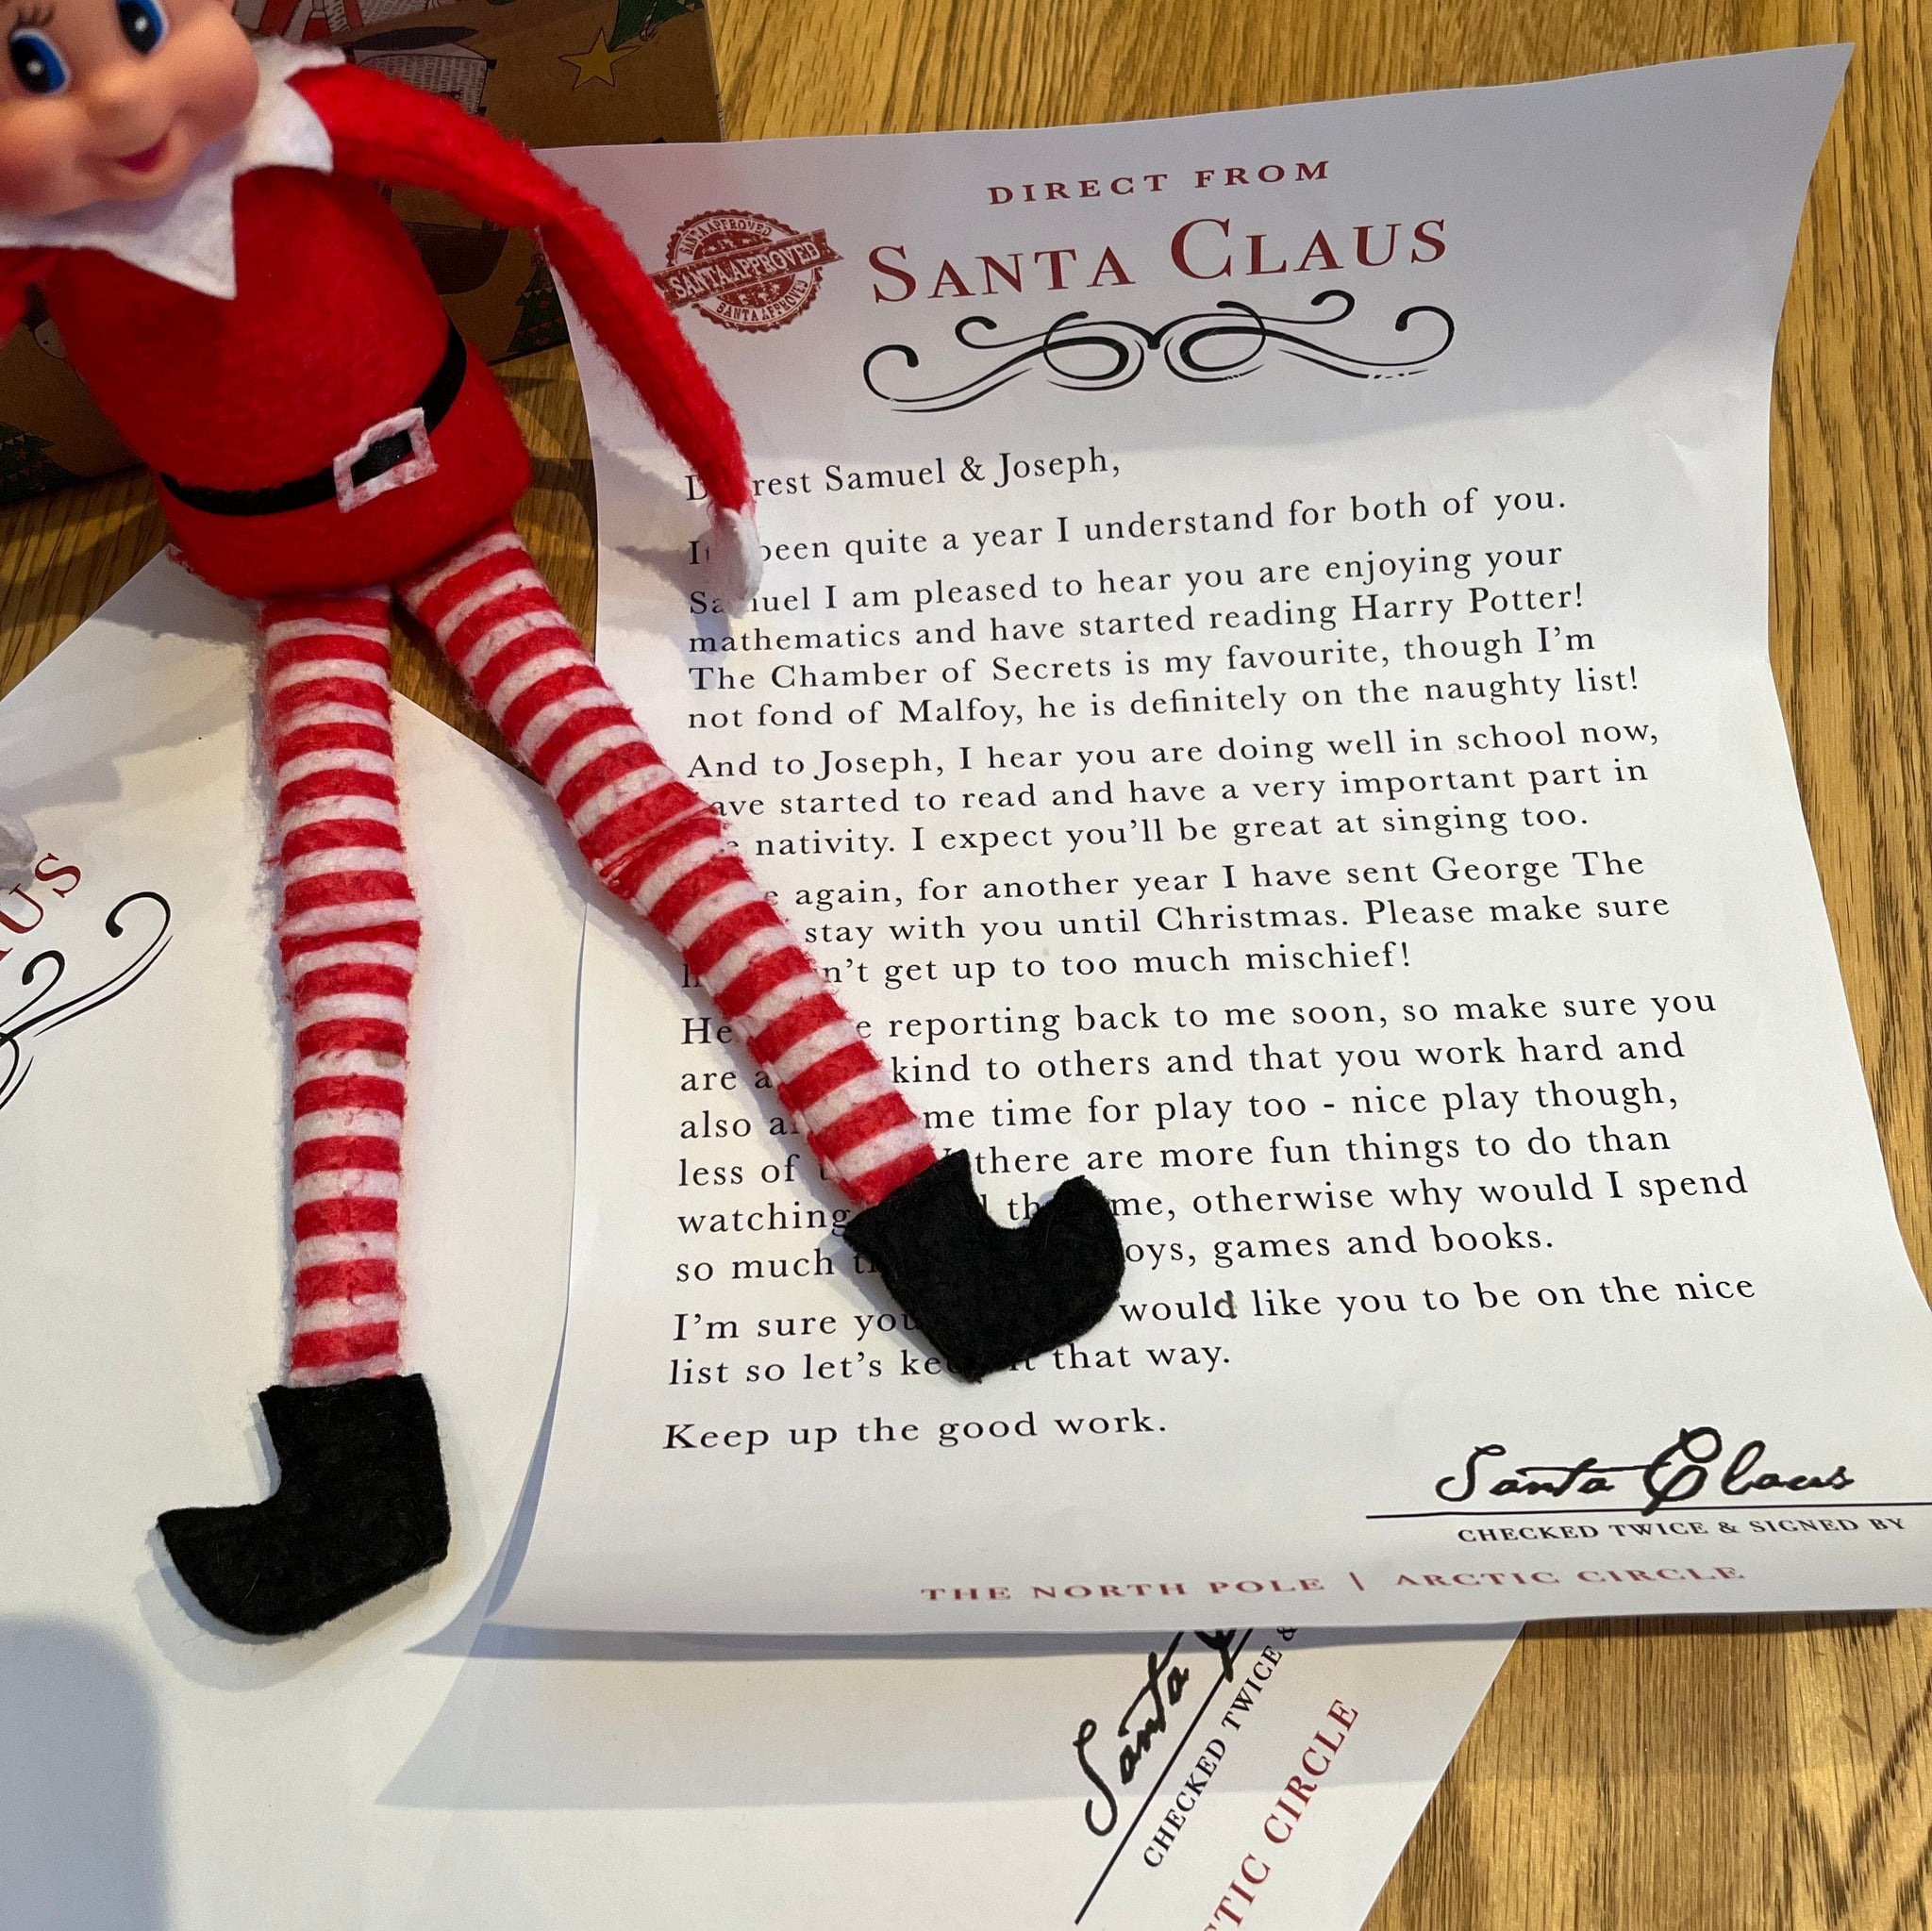 DIRECT FROM
SANTA CLAUS
SANTA APPROVED
SANTA APPROVED
SANTA APPROVED
rest Samuel & Joseph,
been quite a year I understand for both of you.
I am pleased to hear you are enjoying your
mathematics and have started reading Harry Potter!
The Chamber of Secrets is my favourite, though I'm
not fond of Malfoy, he is definitely on the naughty list!
And to Joseph, I hear you are doing well in school now,
ave started to read and have a very important part in
nativity. I expect you'll be great at singing too.
again, for another year I have sent George The
stay with you until Christmas. Please make sure
n't get up to too much mischief!
He reporting back to me soon, so make sure you
are kind to others and that you work hard and
also me time for play too - nice play though,
less of there are more fun things to do than
watching me, otherwise why would I spend
so much oys, games and books.
I'm sure would like you to be on the nice
list so let's that way.
Keep up the good work.
Santa Claus
CHECKED TWICE & SIGNED BY
THE NORTH POLE | ARCTIC CIRCLE
AUS
Santa
CHECKED TWICE &
TIC CIRCLE